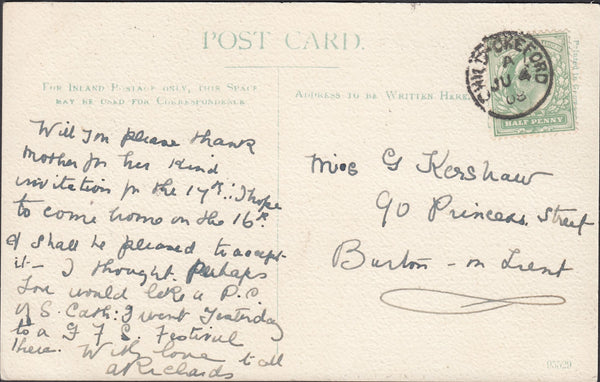 POST CARD.
FOR INLAND POSTAGE ONLY, THIS SPACE
MAY BE USED FOR CORRESPONDENCE.
ADDRESS TO BE WRITTEN HERE.
OKEFORD
A
JU 4
08
HALF PENNY
Will you please thank
Mother for her kind
invitation for the 17th: I hope
to come home on the 16th
& shall be pleased to accept
it - I thought perhaps
you would like a P.C.
of S. Cath: I went yesterday
to a G F S. Festival
there. With love to all
A Richards
Miss G Kershaw
90 Princess Street
Burton - on Trent
95529